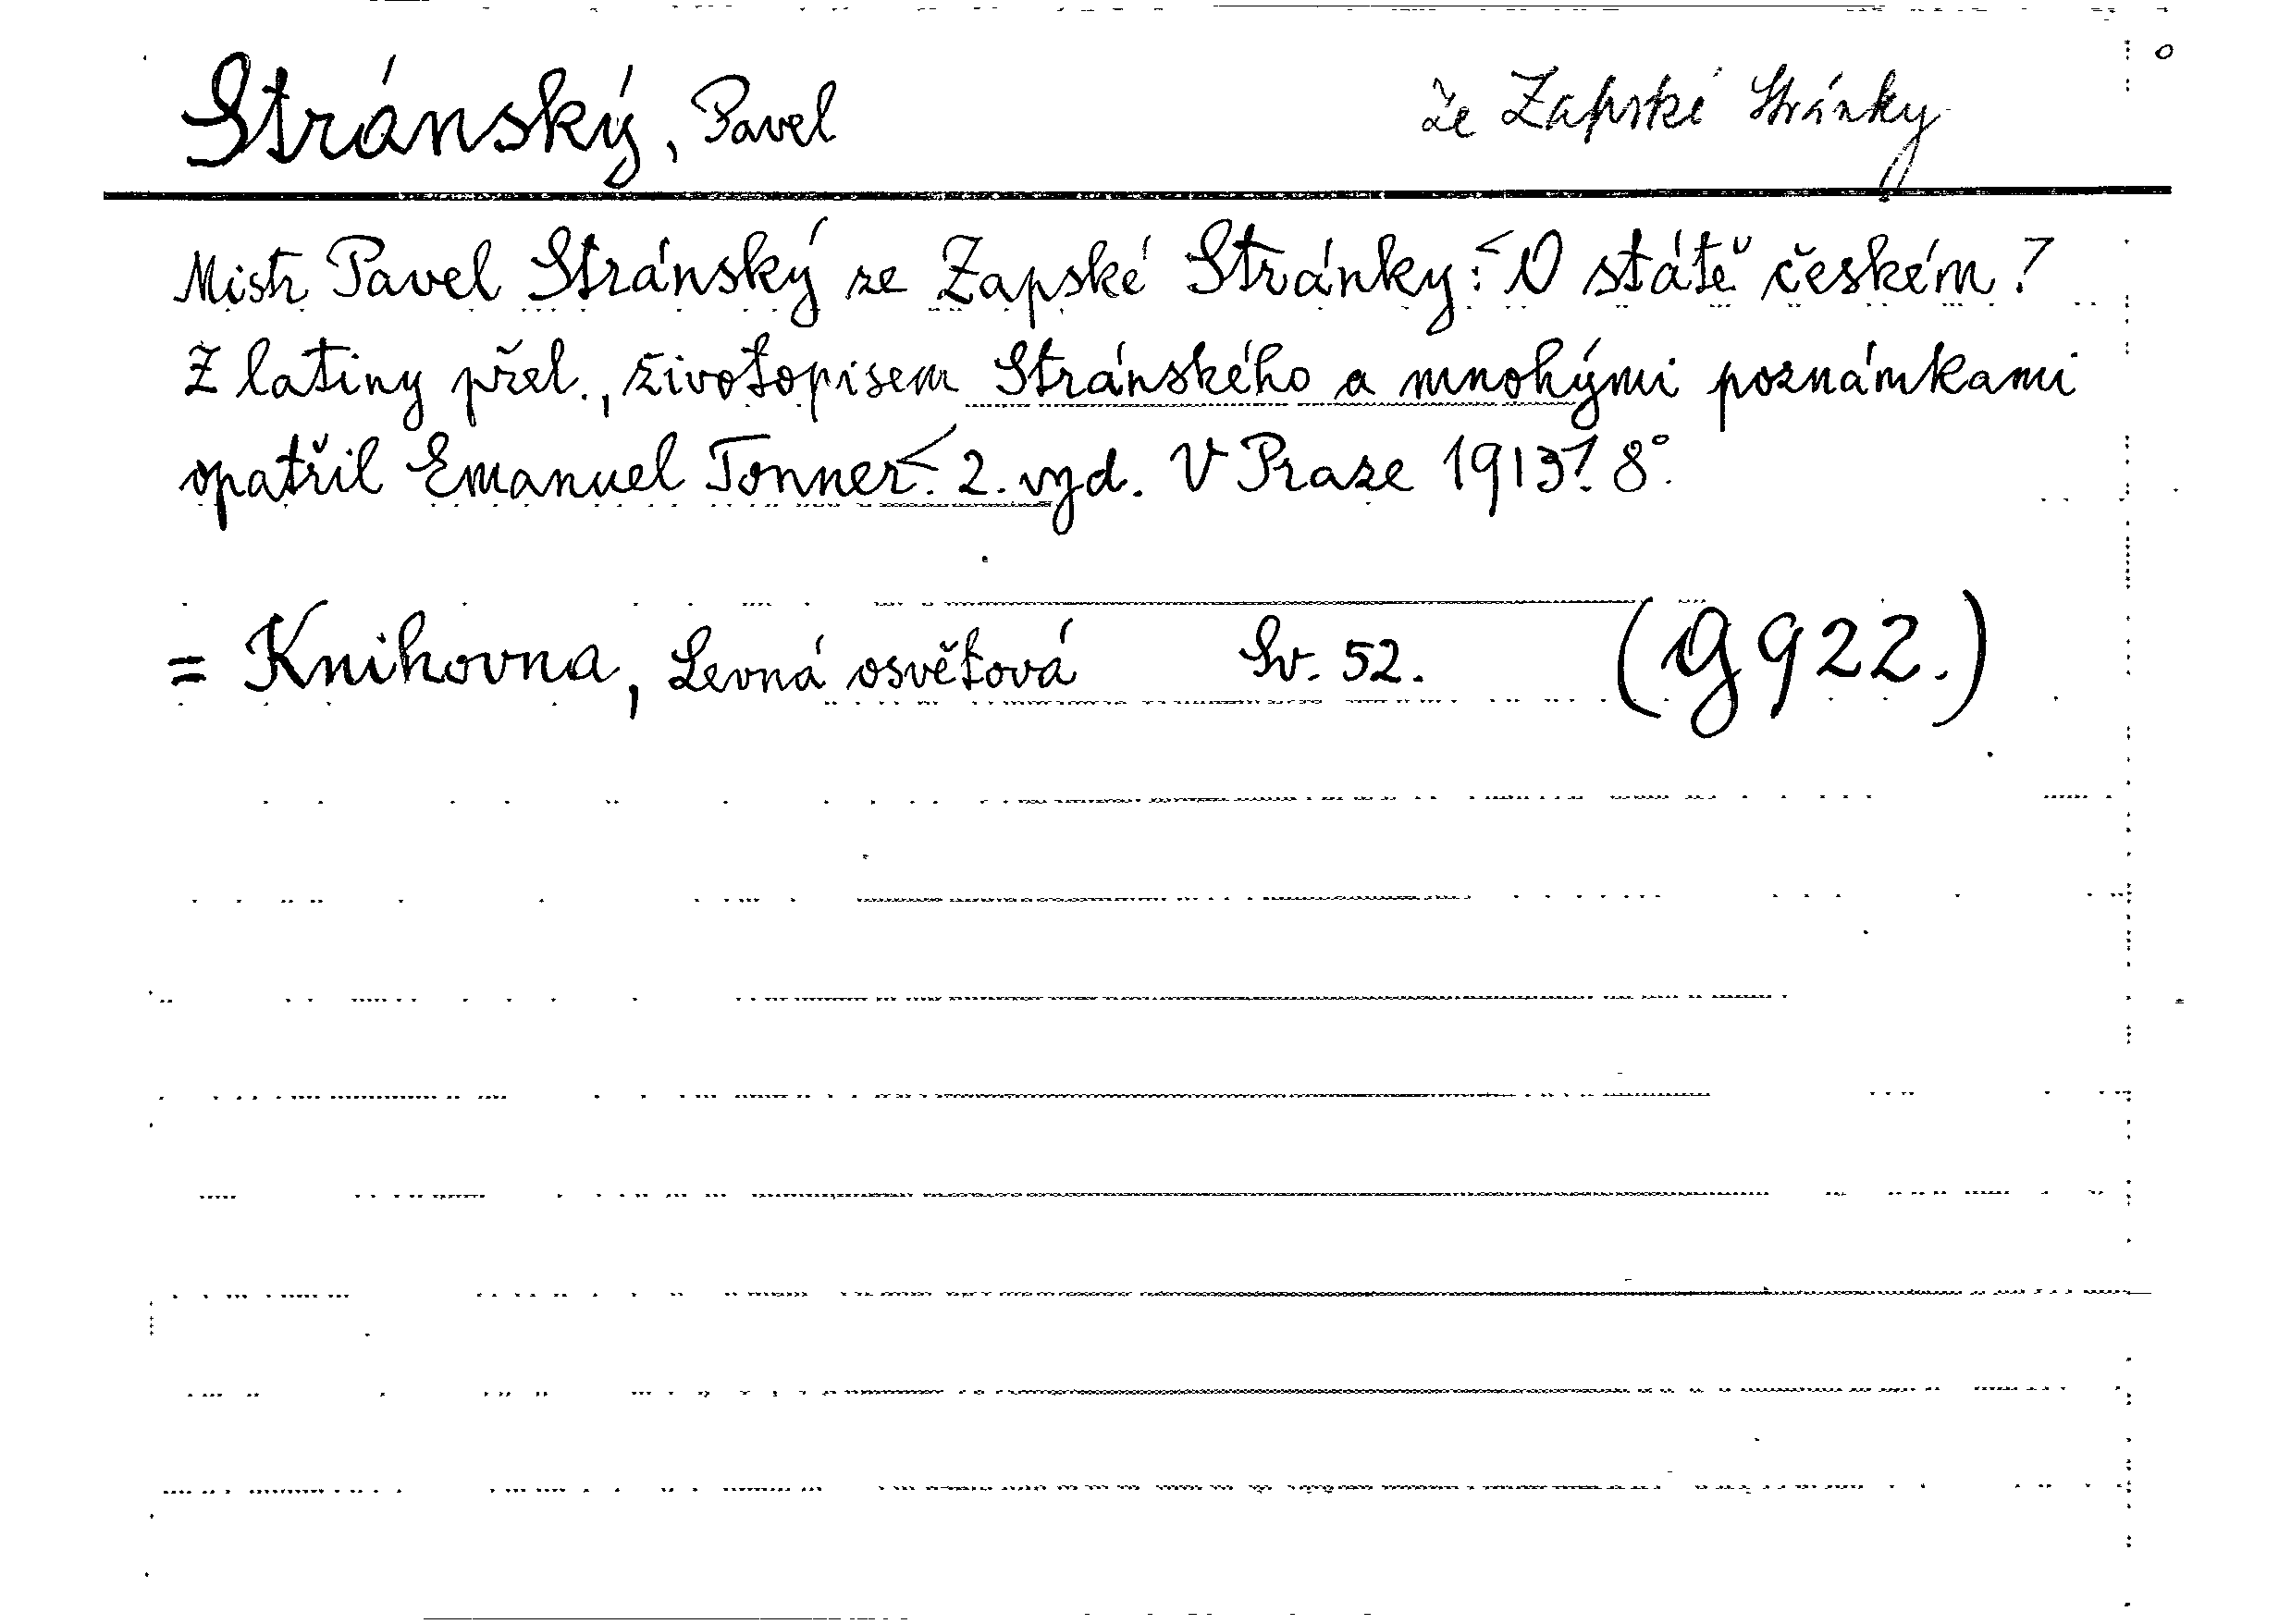 Stránský, Pavel ze Zapské Stránky
Mistr Pavel Stránský ze Zapské Stránky: O státě českém.
Z latiny přel., životopisem Stránského a mnohými poznámkami
opatřil Emanuel Tonner. 2. vyd. V Praze 1913. 8°.
= Knihovna, Levná osvětová Sv. 52. (G 922.)